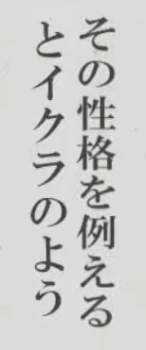 その性格を例える
とイクラのよう